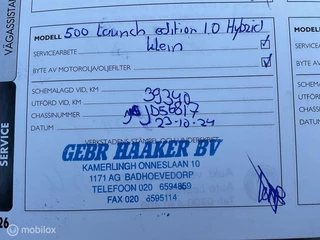 VÄGASSISTAN
MODELL 500 Launch edition 1.0 Hybrid
klein
SERVICEARBETE
BYTE AV MOTOROLJA/OLJEFILTER
SCHEMALAGD VID, KM
UTFÖRD VID, KM 39340
CHASSINUMMER JD56817
DATUM 23-10-24
VERKSTADENS STÄMPEL OCH UNDERSKRIFT
GEBR HAAKER BV
KAMERLINGH ONNESLAAN 10
1171 AG BADHOEVEDORP
TELEFOON 020 6594859
FAX 020 6595114
SERVICE
26
Marktplaats